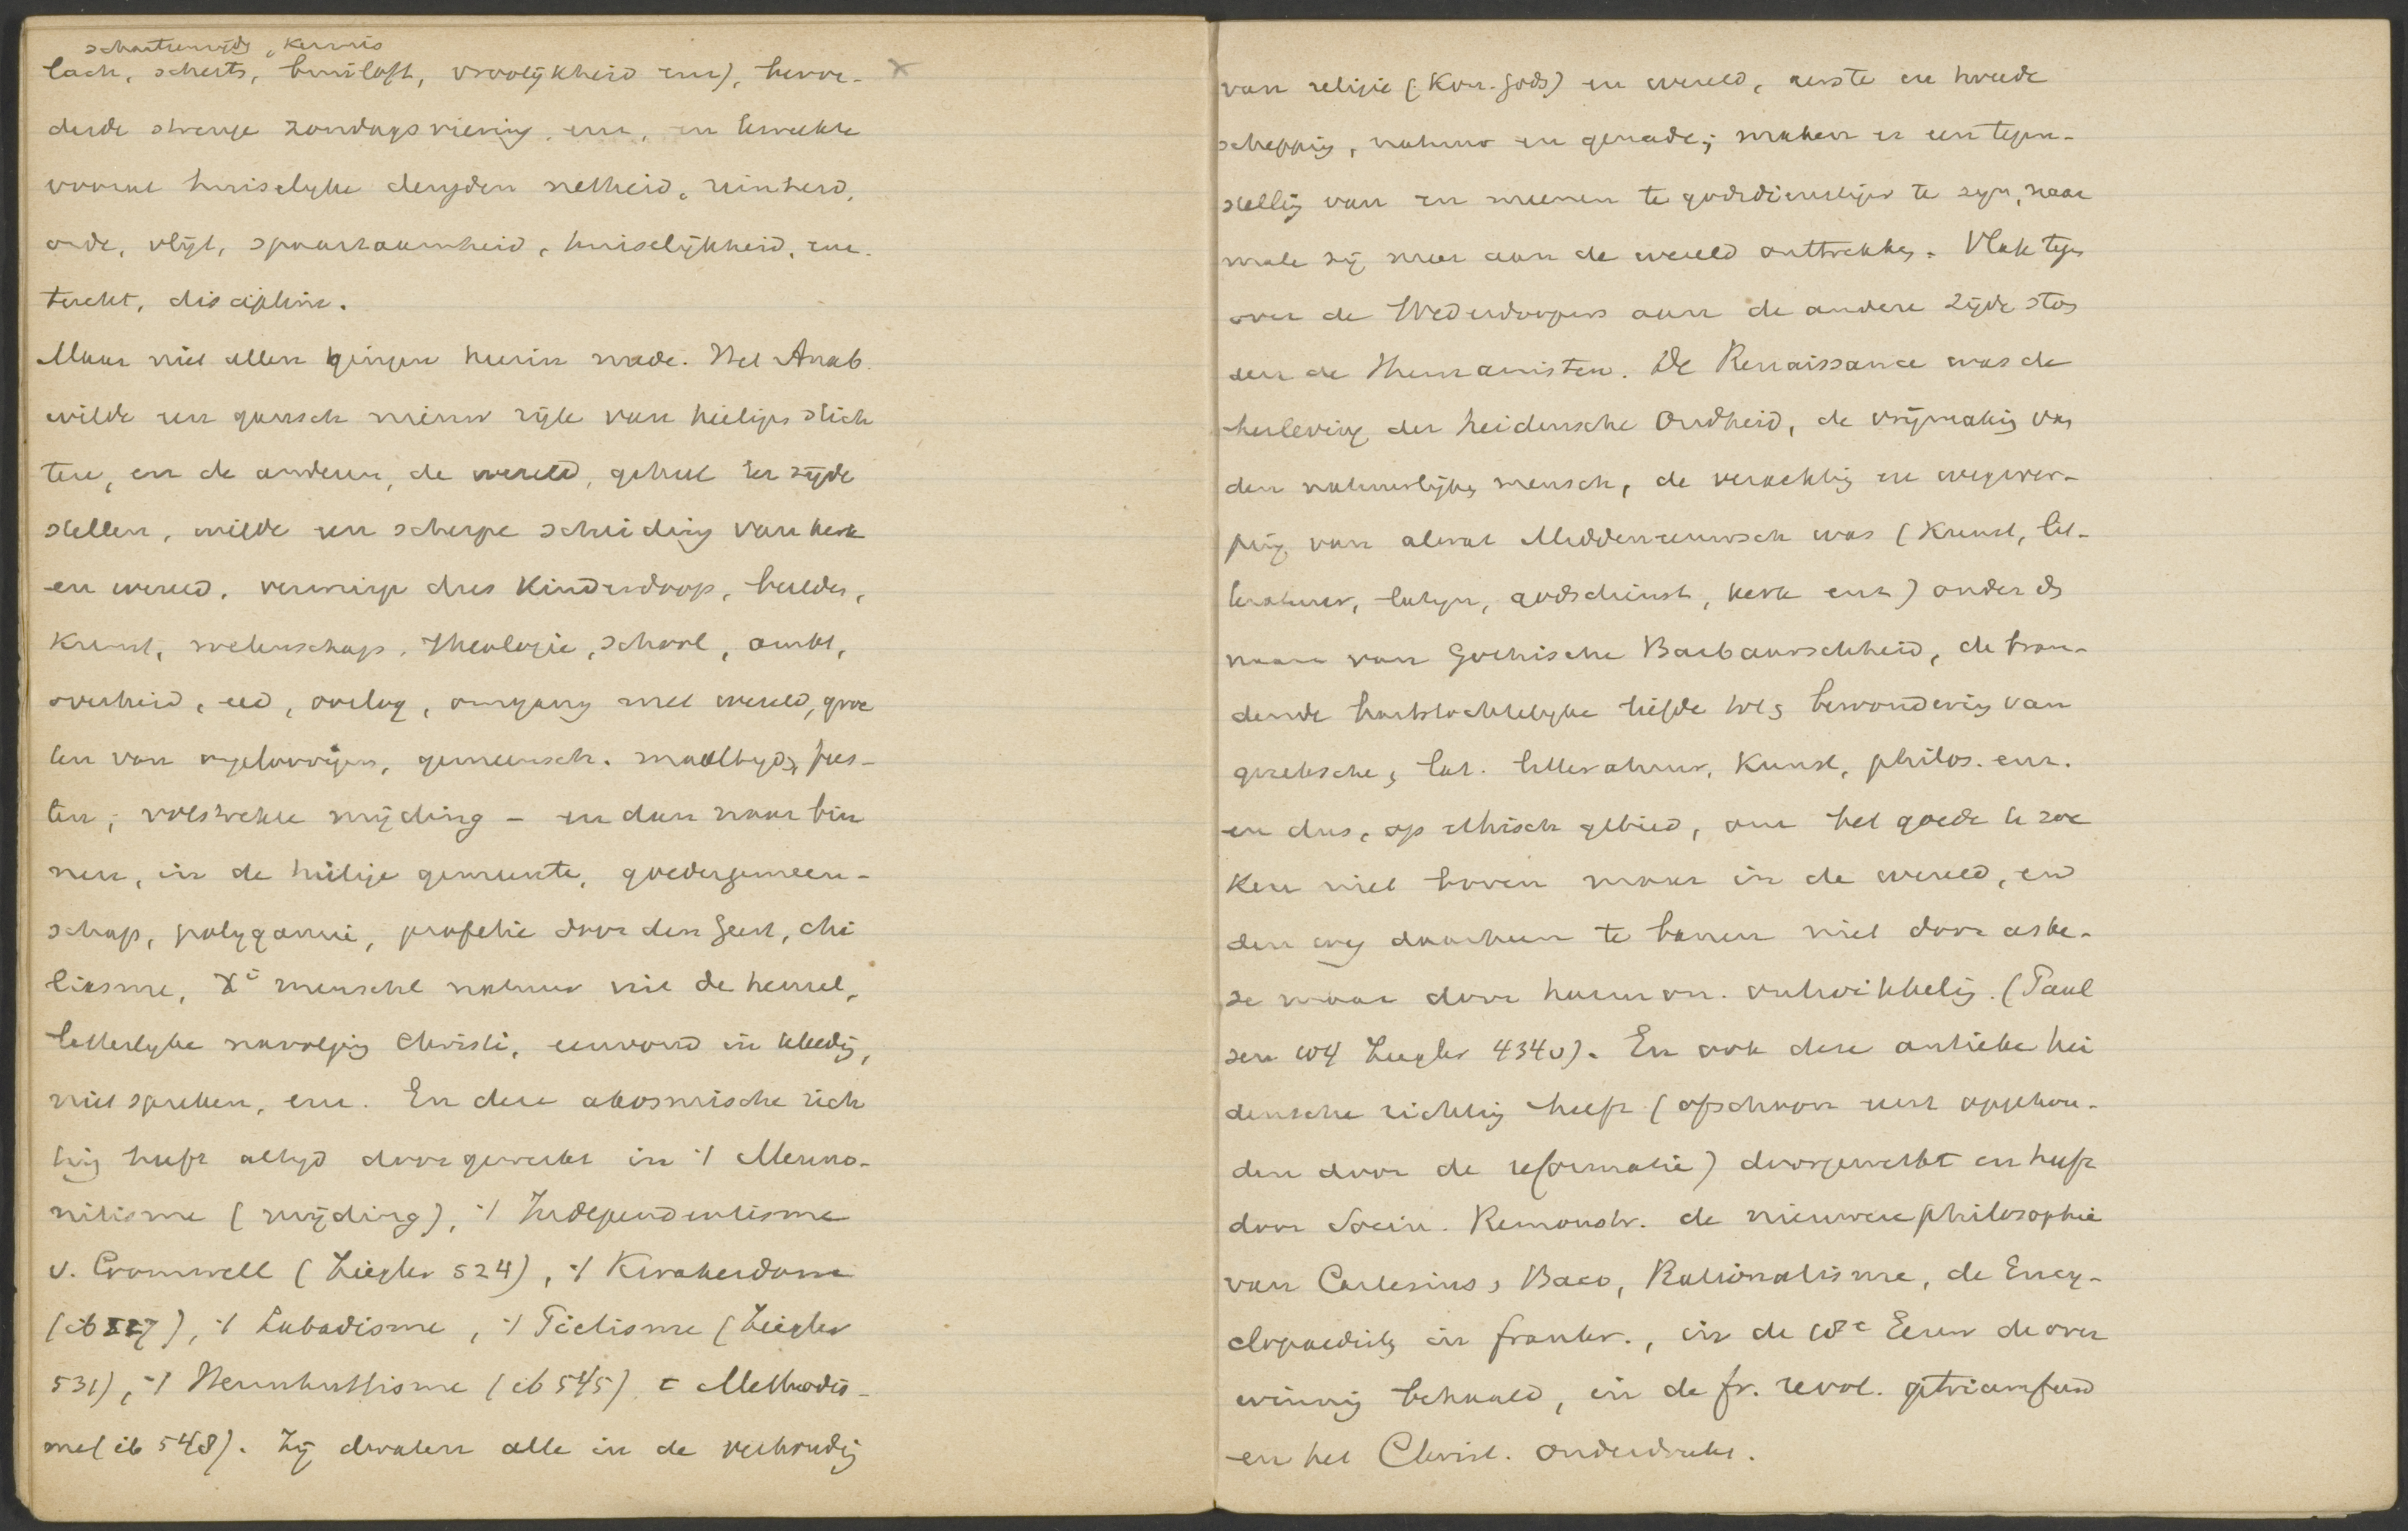 schaatsenrijden, kermis
lach, scherts, bruiloft, vroolijkheid enz), bevor-
derde strenge zondagsviering, enz, en kweekte
vooral huiselijke deugden netheid, reinheid,
orde, vlijt, spaarzaamheid, huiselijkheid, enz.
tucht, discipline.
Maar niet allen gingen hierin mede. Het Anab.
wilde een gansch nieuw rijk van heiligen stich
ten, en de anderen, de wereld, geheel ter zijde
stellen, wilde een scherpe scheiding van kerk
en wereld, verwierp dus Kinderdoop, beelden,
Kunst, wetenschap, theologie, school, ambt,
overheid, eed, oorlog, omgang met wereld, groe
ten van ongeloovigen, gemeensch. maaltijden, fees-
ten, volstrekte mijding – en dan naar bin
nen, in de heilige gemeente, goedergemeen-
schap, polygamie, profetie door den Geest, chi
liasme, X's menschel natuur uit de hemel,
letterlijke navolging Christi, eenvoud in kleeding,
niet spreken, enz. En deze akosmische rich
ting heeft altijd doorgewerkt in 't Menno-
nitisme (mijding), 't Independentisme
v. Cromwell (Ziegler 524), 't Kwakerdom
(ib 527), 't Labadisme, 't Pietisme (Ziegler
531), 't Hernhuttisme (ib 545) t Methodis-
me (ib 548). Zij dwalen alle in de verhouding
van religie (Kon. Gods) en wereld, eerste en tweede
schepping, natuur en genade; maken er een tegen-
stelling van en meenen te godsdienstiger te zijn, naar
mate zij meer aan de wereld onttrekken. Vlak tegen
over de Wederdoopers aan de andere zijde ston
den de Humanisten. De Renaissance was de
herleving der heidensche Oudheid, de vrijmaking van
den natuurlijken mensch, de verachting en wegwer-
ping van alwat Middeneeuwsch was (Kunst, lit-
teratuur, latijn, godsdienst, kerk enz) onder de
naam van Gothische Barbaarschheid, de bran-
dende hartstochtelijke liefde tot en bewondering van
grieksche, lat. litteratuur, Kunst, philos. enz.
en dus, op ethisch gebied, om het goede te zoe
ken niet boven maar in de wereld, en
den weg daarheen te banen niet door aske-
se maar door human. ontwikkeling. (Paul
sen 104 Ziegler 434v). En ook deze antieke hei
densche richting heeft (ofschoon eerst opgehou-
den door de reformatie) doorgewerkt en heeft
door Socin. Remonstr. de nieuwere philosophie
van Cartesius, Baco, Rationalisme, de Ency-
clopaedisten in frankr., in de 18e Eeuw de over
winning behaald, in de fr. revol. getriumfeerd
en het Christ. onderdrukt.